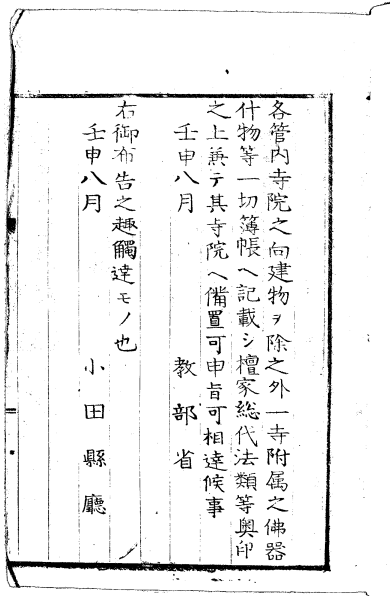 各管内寺院之向建物ヲ除之外一寺附属之佛器
什物等一切簿帳ヘ記載シ檀家総代法類等奥印
之上兼テ其寺院ヘ備置可申旨可相達候事
壬申八月　教部省
右御布告之趣觸達モノ也
壬申八月　小田縣廳